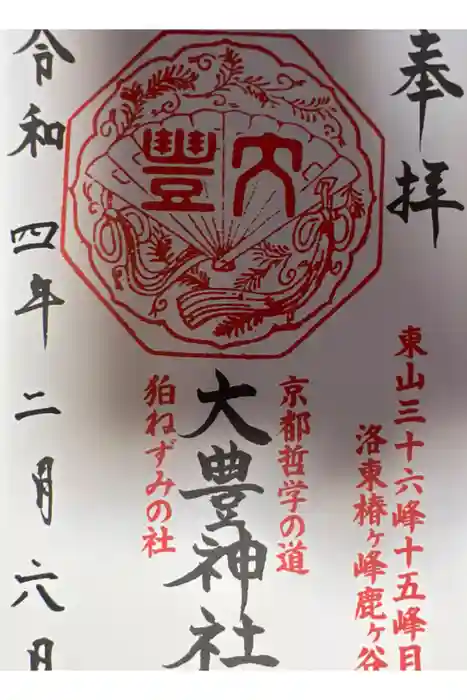 奉拝
東山三十六峰十五峰目
洛東椿ヶ峰鹿ヶ谷
京都哲学の道
大豊
大豊神社
狛ねずみの社
令和四年二月六日